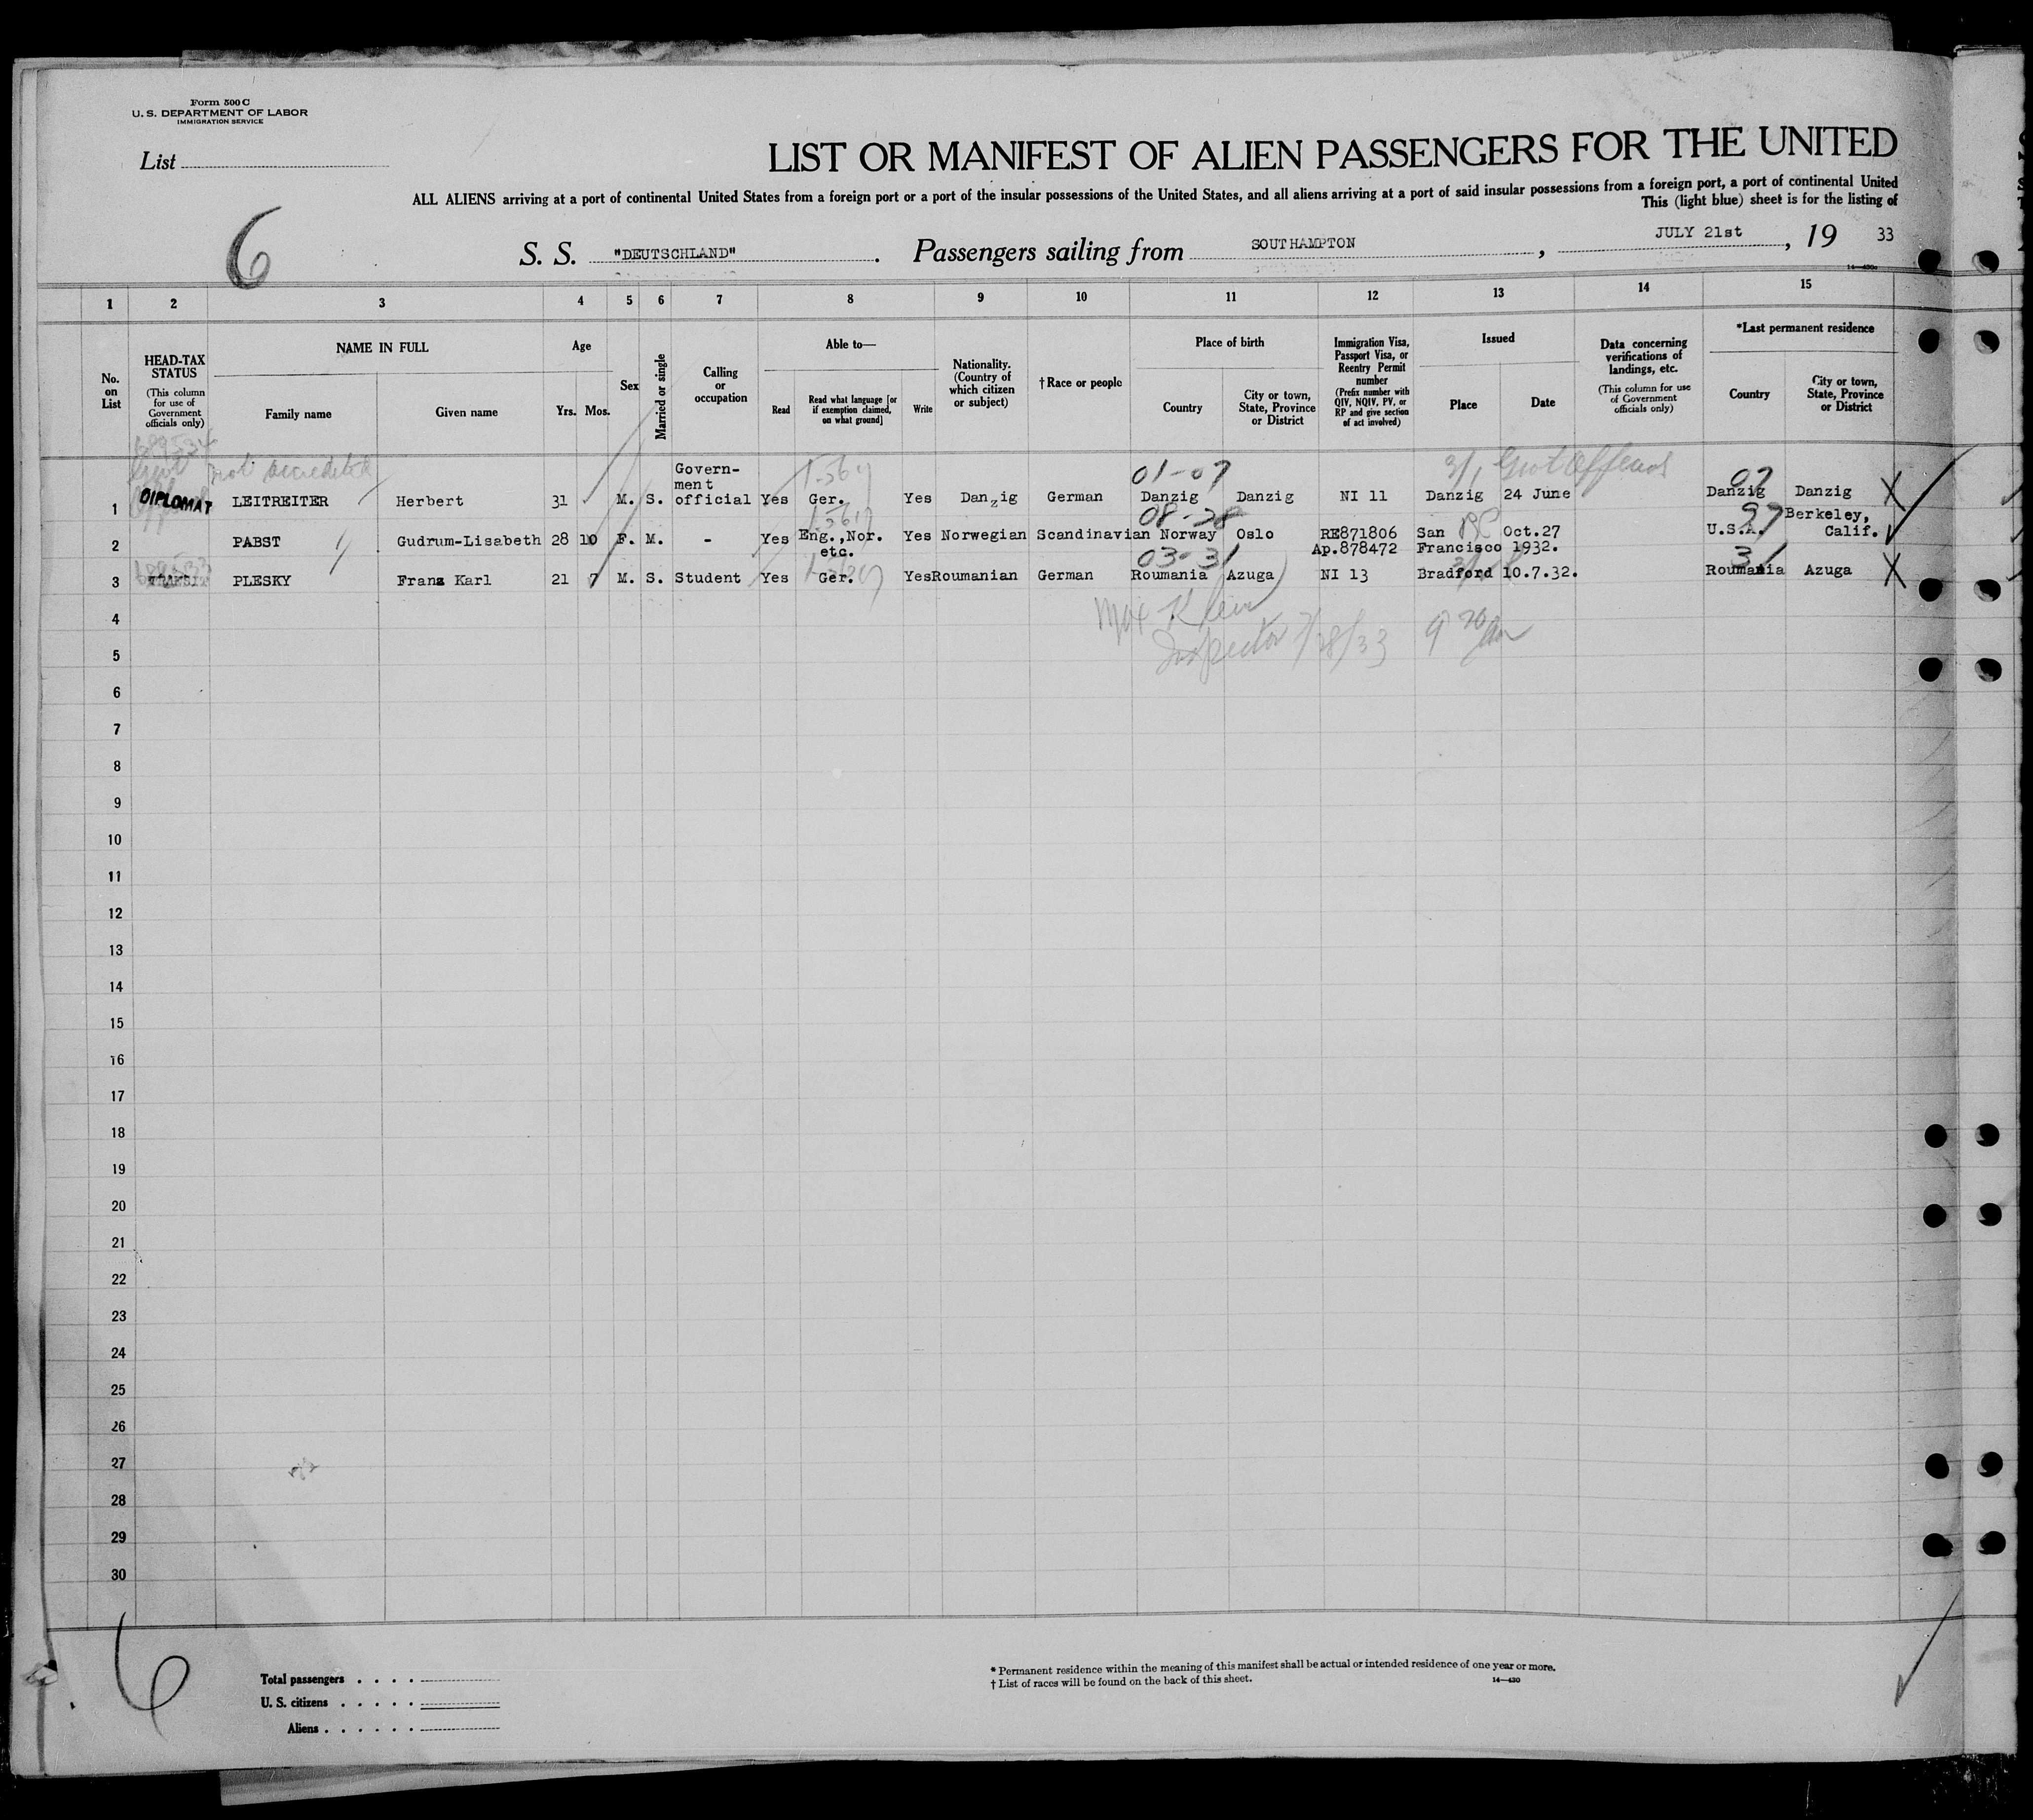 Form 500 C
U. S. DEPARTMENT OF LABOR
IMMIGRATION SERVICE
List
6
LIST OR MANIFEST OF ALIEN PASSENGERS FOR THE UNITED
ALL ALIENS arriving at a port of continental United States from a foreign port or a port of the insular possessions of the United States, and all aliens arriving at a port of said insular possessions from a foreign port, a port of continental United
This (light blue) sheet is for the listing of
S. S. "DEUTSCHLAND". Passengers sailing from SOUTHAMPTON, JULY 21st, 19 33
14—430c
1 2 3 4 5 6 7 8 9 10 11 12 13 14 15
No. on List
HEAD-TAX STATUS
(This column for use of Government officials only)
NAME IN FULL
Family name Given name
Age
Yrs. Mos.
Sex
Married or single
Calling or occupation
Able to—
Read
Read what language [or if exemption claimed, on what ground]
Write
Nationality. (Country of which citizen or subject)
†Race or people
Place of birth
Country
City or town, State, Province or District
Immigration Visa, Passport Visa, or Reentry Permit number
(Prefix number with QIV, NQIV, PV, or RP and give section of act involved)
Issued
Place Date
Data concerning verifications of landings, etc.
(This column for use of Government officials only)
*Last permanent residence
Country
City or town, State, Province or District
not accredited
01-07
3/1 Govt Official
07
1 DIPLOMAT LEITREITER Herbert 31 M. S. Govern-ment official Yes Ger. Yes Danzig German Danzig Danzig NI 11 Danzig 24 June Danzig Danzig X
08-28
97
2 PABST Gudrum-Lisabeth 28 10 F. M. - Yes Eng.,Nor. etc. Yes Norwegian Scandinavian Norway Oslo RE871806 Ap.878472 San Francisco Oct.27 1932. U.S.A. Berkeley, Calif.
03-31
31
3 PLESKY Franz Karl 21 7 M. S. Student Yes Ger. Yes Roumanian German Roumania Azuga NI 13 Bradford 10.7.32. Roumania Azuga X
4
Max Klein
5
Inspector 7/28/33 9 20 am
6
7
8
9
10
11
12
13
14
15
16
17
18
19
20
21
22
23
24
25
26
27
28
29
30
6
Total passengers . . . .
U. S. citizens . . . . .
Aliens . . . . . .
* Permanent residence within the meaning of this manifest shall be actual or intended residence of one year or more.
† List of races will be found on the back of this sheet.
14—430